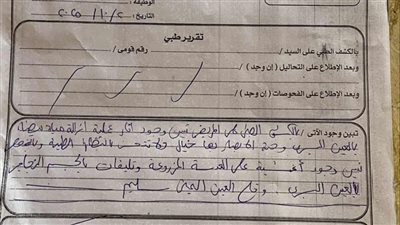 الوظيفة :
التاريخ : ٢ / ١٠ / ٢٠٢٥
تقرير طبي
بالكشف الطبي على السيد / رقم قومى /
وبعد الإطلاع على التحاليل ( إن وجد ) /
وبعد الإطلاع على الفحوصات ( إن وجد ) /
تبين وجود الأتى / بالكشف الطبي على المريض تبين وجود آثار عملية إزالة مياه بيضاء
بالعين اليسرى وحدة الإبصار بها خيال ولا تتحسن بالنظارة الطبية وبالفحص
تبين وجود أغشية على العدسة المزروعة وتليفات بالجسم الزجاجى
بالعين اليسرى . وقاع العين اليمنى سليم